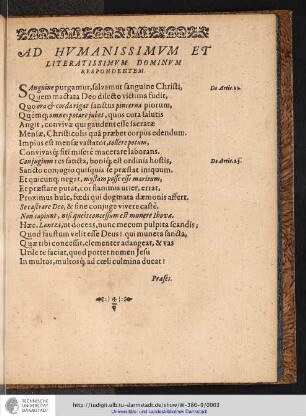 AD HVMANISSIMVM ET
LITERATISSIMVM DOMINVM
RESPONDENTEM.
SAnguine purgamur, salvamur sanguine Christi, De Artic. 22.
Quem mactata Deo dilecto victima fudit,
Quo ora & corda rigat sanctus pincerna piorum,
Quemq; omnes potare jubet, quos cura salutis
Angit, convivæ qui gaudent esse sacratæ
Mensæ, Christicolis quâ præbet corpus edendum.
Impius est mensæ vastator, aufferre potum,
Convivas qui siti miserè macerare laborans.
Conjugium res sancta, boniq; est ordinis hostis, De Artic. 23.
Sancto conjugio quisquis se præstat iniquum.
Et quicunq; negat, mystam posse esse maritum,
Et præstare putat, cor flammis urier, errat,
Proximus huic, fœdi qui dogmata dæmonis affert.
Se castrare Deo, & sine conjuge vivere castè,
Non capiunt, nisi queis concessum est munere Ihovæ.
Hæc, ut docess, nunc mecum pulpita scandis;
Quod faustum velit esse Deus! qui munera sancta,
Quæ tibi concessit, clementer adaugeat, & vas
Utile te faciat, quod portet nomen Jesu
In multos, multosq; ad cœli culmina ducat!
Præses.
TECHNISCHE
UNIVERSITÄT
DARMSTADT
http://tudigit.ulb.tu-darmstadt.de/show/W-386-9/0003
Universitäts- und Landesbibliothek Darmstadt